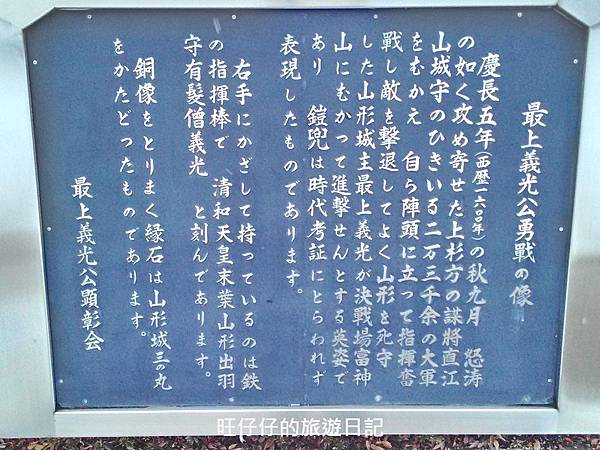 最上義光公勇戦の像
慶長五年(西歴一六〇〇年)の秋九月 怒涛
の如く攻め寄せた上杉方の謀将直江
山城守のひきいる二万三千余の大軍
をむかえ 自ら陣頭に立って指揮奮
戦し敵を撃退してよく山形を死守
した山形城主最上義光が決戦場富神
山にむかって進撃せんとする英姿で
あり 鎧兜は時代考証にとらわれず
表現したものであります。
右手にかざして持っているのは鉄
の指揮棒で 清和天皇末葉山形出羽
守有髪僧義光 と刻んであります。
銅像をとりまく縁石は山形城三の丸
をかたどったものであります。
最上義光公顕彰会
旺仔仔的旅遊日記